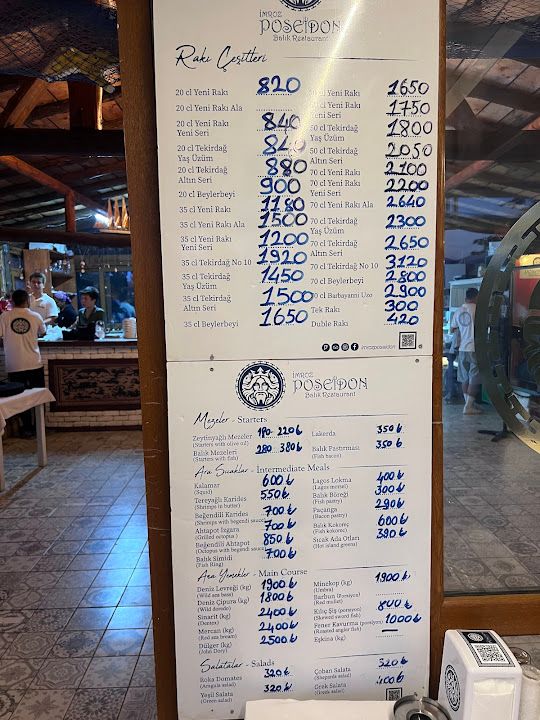 İMROZ
POSEİDON
Balık Restaurant
Rakı Çeşitleri
20 cl Yeni Rakı 820
20 cl Yeni Rakı Ala
20 cl Yeni Rakı 840
Yeni Seri
20 cl Tekirdağ 840
Yaş Üzüm
20 cl Tekirdağ 880
Altın Seri
20 cl Beylerbeyi 900
35 cl Yeni Rakı 1180
35 cl Yeni Rakı Ala 1500
35 cl Yeni Rakı 1200
Yeni Seri
35 cl Tekirdağ No 10 1920
35 cl Tekirdağ 1450
Yaş Üzüm
35 cl Tekirdağ 1500
Altın Seri
35 cl Beylerbeyi 1650
50 cl Yeni Rakı 1650
50 cl Yeni Rakı 1750
Yeni Seri
50 cl Tekirdağ 1800
Yaş Üzüm
50 cl Tekirdağ 2050
Altın Seri
70 cl Yeni Rakı 2100
70 cl Yeni Rakı 2200
Yeni Seri
70 cl Yeni Rakı Ala 2640
70 cl Tekirdağ 2300
Yaş Üzüm
70 cl Tekirdağ 2650
Altın Seri
70 cl Tekirdağ No 10 3120
70 cl Beylerbeyi 2800
70 cl Barbayanni Uzo 2900
Tek Rakı 300
Duble Rakı 420
imrozposeidon
İMROZ
POSEİDON
Balık Restaurant
Mezeler - Starters
Zeytinyağlı Mezeler 180 220₺
(Starters with olive oil)
Balık Mezeleri 280 380₺
(Starters with fish)
Lakerda 350₺
Balık Pastırması 350₺
(Fish bacon)
Ara Sıcaklar - Intermediate Meals
Kalamar 600₺
(Squid)
Tereyağlı Karides 550₺
(Shrimps in butter)
Beğendili Karides 700₺
(Shrimps with begendi sauce)
Ahtapot Izgara 700₺
(Grilled octopus)
Beğendili Ahtapot 850₺
(Octopus with begendi sauce)
Balık Simidi 700₺
(Fish Ring)
Lagos Lokma 400₺
(Lagos morsel)
Balık Böreği 300₺
(Fish pastry)
Paçanga 290₺
(Bacon pastry)
Balık Kokoreç 600₺
(Fish kokorec)
Sıcak Ada Otları 390₺
(Hot island greens)
Ana Yemekler - Main Course
Deniz Levreği (kg) 1900₺
(Wild sea bass)
Deniz Çipura (kg) 1800₺
(Wild dorado)
Sinarit (kg) 2400₺
(Dentex)
Mercan (kg) 2400₺
(Red sea bream)
Dülger (kg) 2500₺
(John Dory)
Minekop (kg) 1900₺
(Umbra)
Barbun (porsiyon)
(Red mullet)
Kılıç Şiş (porsiyon) 800₺
(Skewed sword fish)
Fener Kavurma (porsiyon) 1000₺
(Roasted angler fish)
Eşkina (kg)
Salatalar - Salads
Roka Domates 320₺
(Arugula salad)
Yeşil Salata 320₺
(Green salad)
Çoban Salata 320₺
(Sheperds salad)
Grek Salata 400₺
(Greek salad)